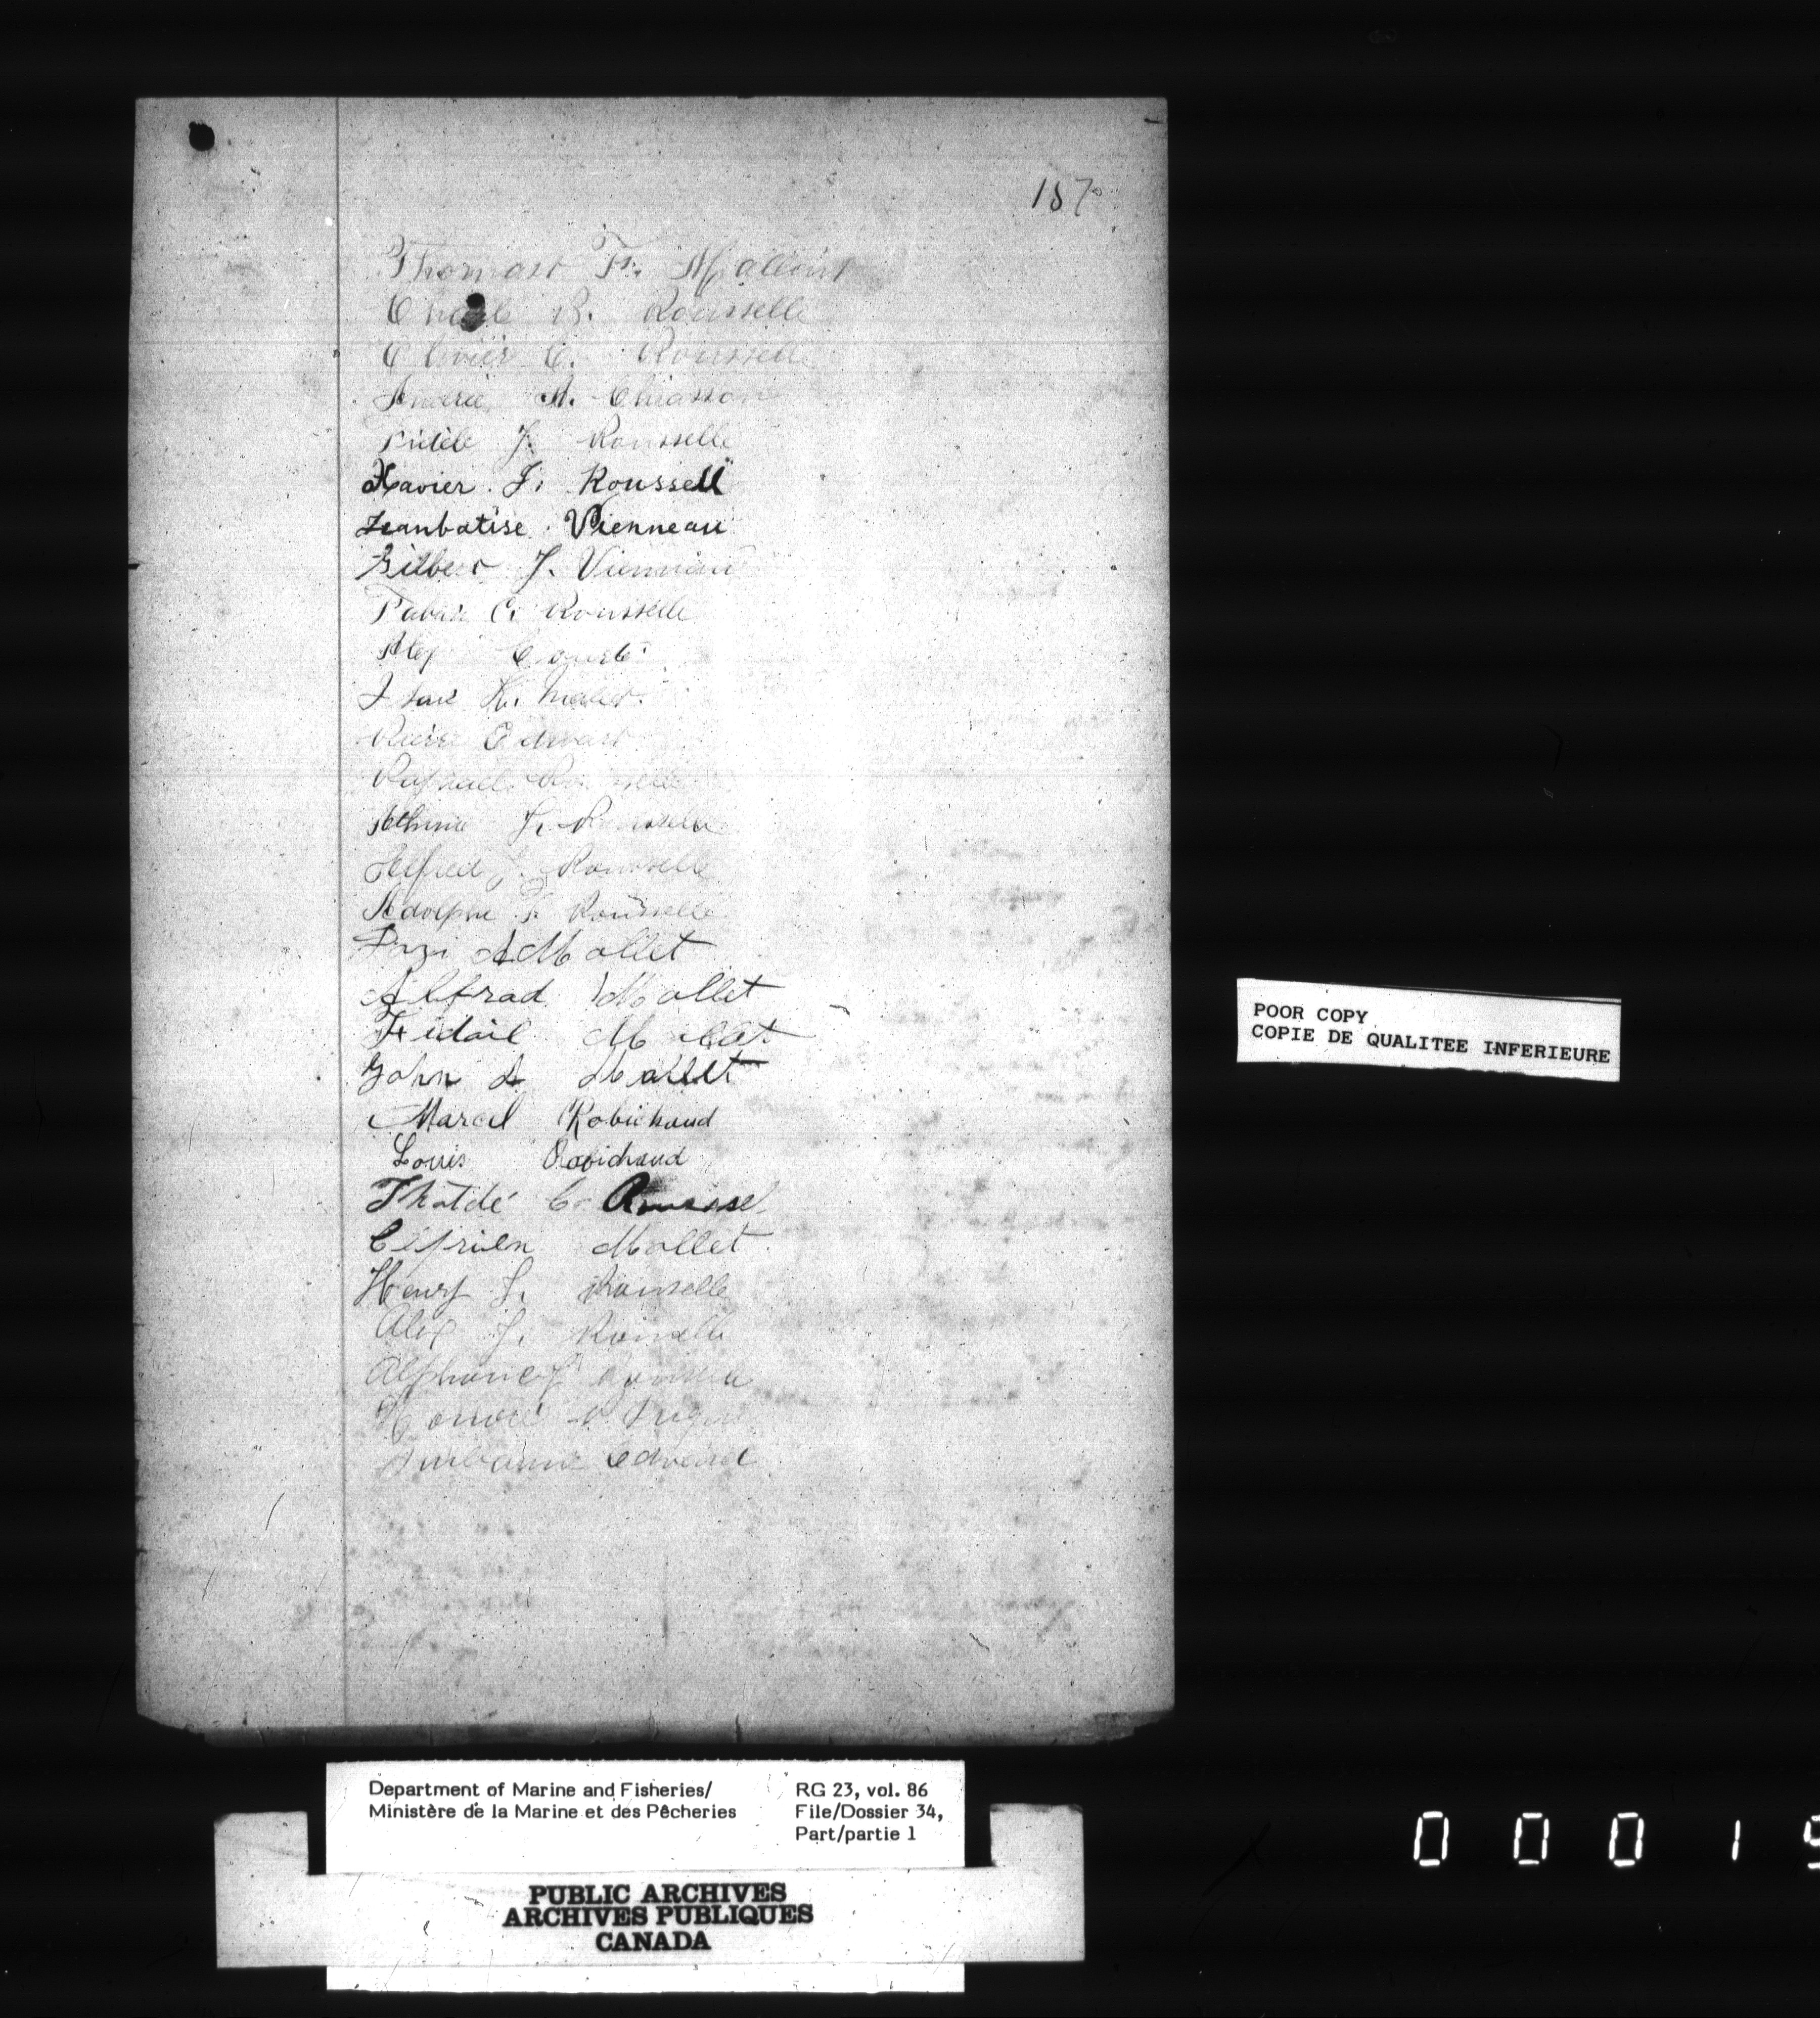 187
Thomas F. Mallait
B. Rousselle
Olivier C. Rousselle
André A. Chiasson
Fidèle J. Rousselle
Xavier. J. Roussell
Jeanbatise. Vienneau
Gilber J. Vienneau
Fabien C. Rousselle
Alex
Isaie
Pierre Edwart
Raphael Rousselle
J. Rousselle
Alfred J. Rousselle
Adolphe F. Rousselle
A Mallet
Alfrad Mallet
Fidail Mallet
John A Mallet
Marcel Robichaud
Louis Robichaud
Thatdé C. Roussel
Ciprien Mallet
Henry J. Rousselle
Alex J. Rousselle
Alphonce J Rousselle
Honoré
Edward
POOR COPY
COPIE DE QUALITEE INFERIEURE
Department of Marine and Fisheries/ RG 23, vol. 86
Ministère de la Marine et des Pêcheries File/Dossier 34,
Part/partie 1
PUBLIC ARCHIVES
ARCHIVES PUBLIQUES
CANADA
0 0 0 1